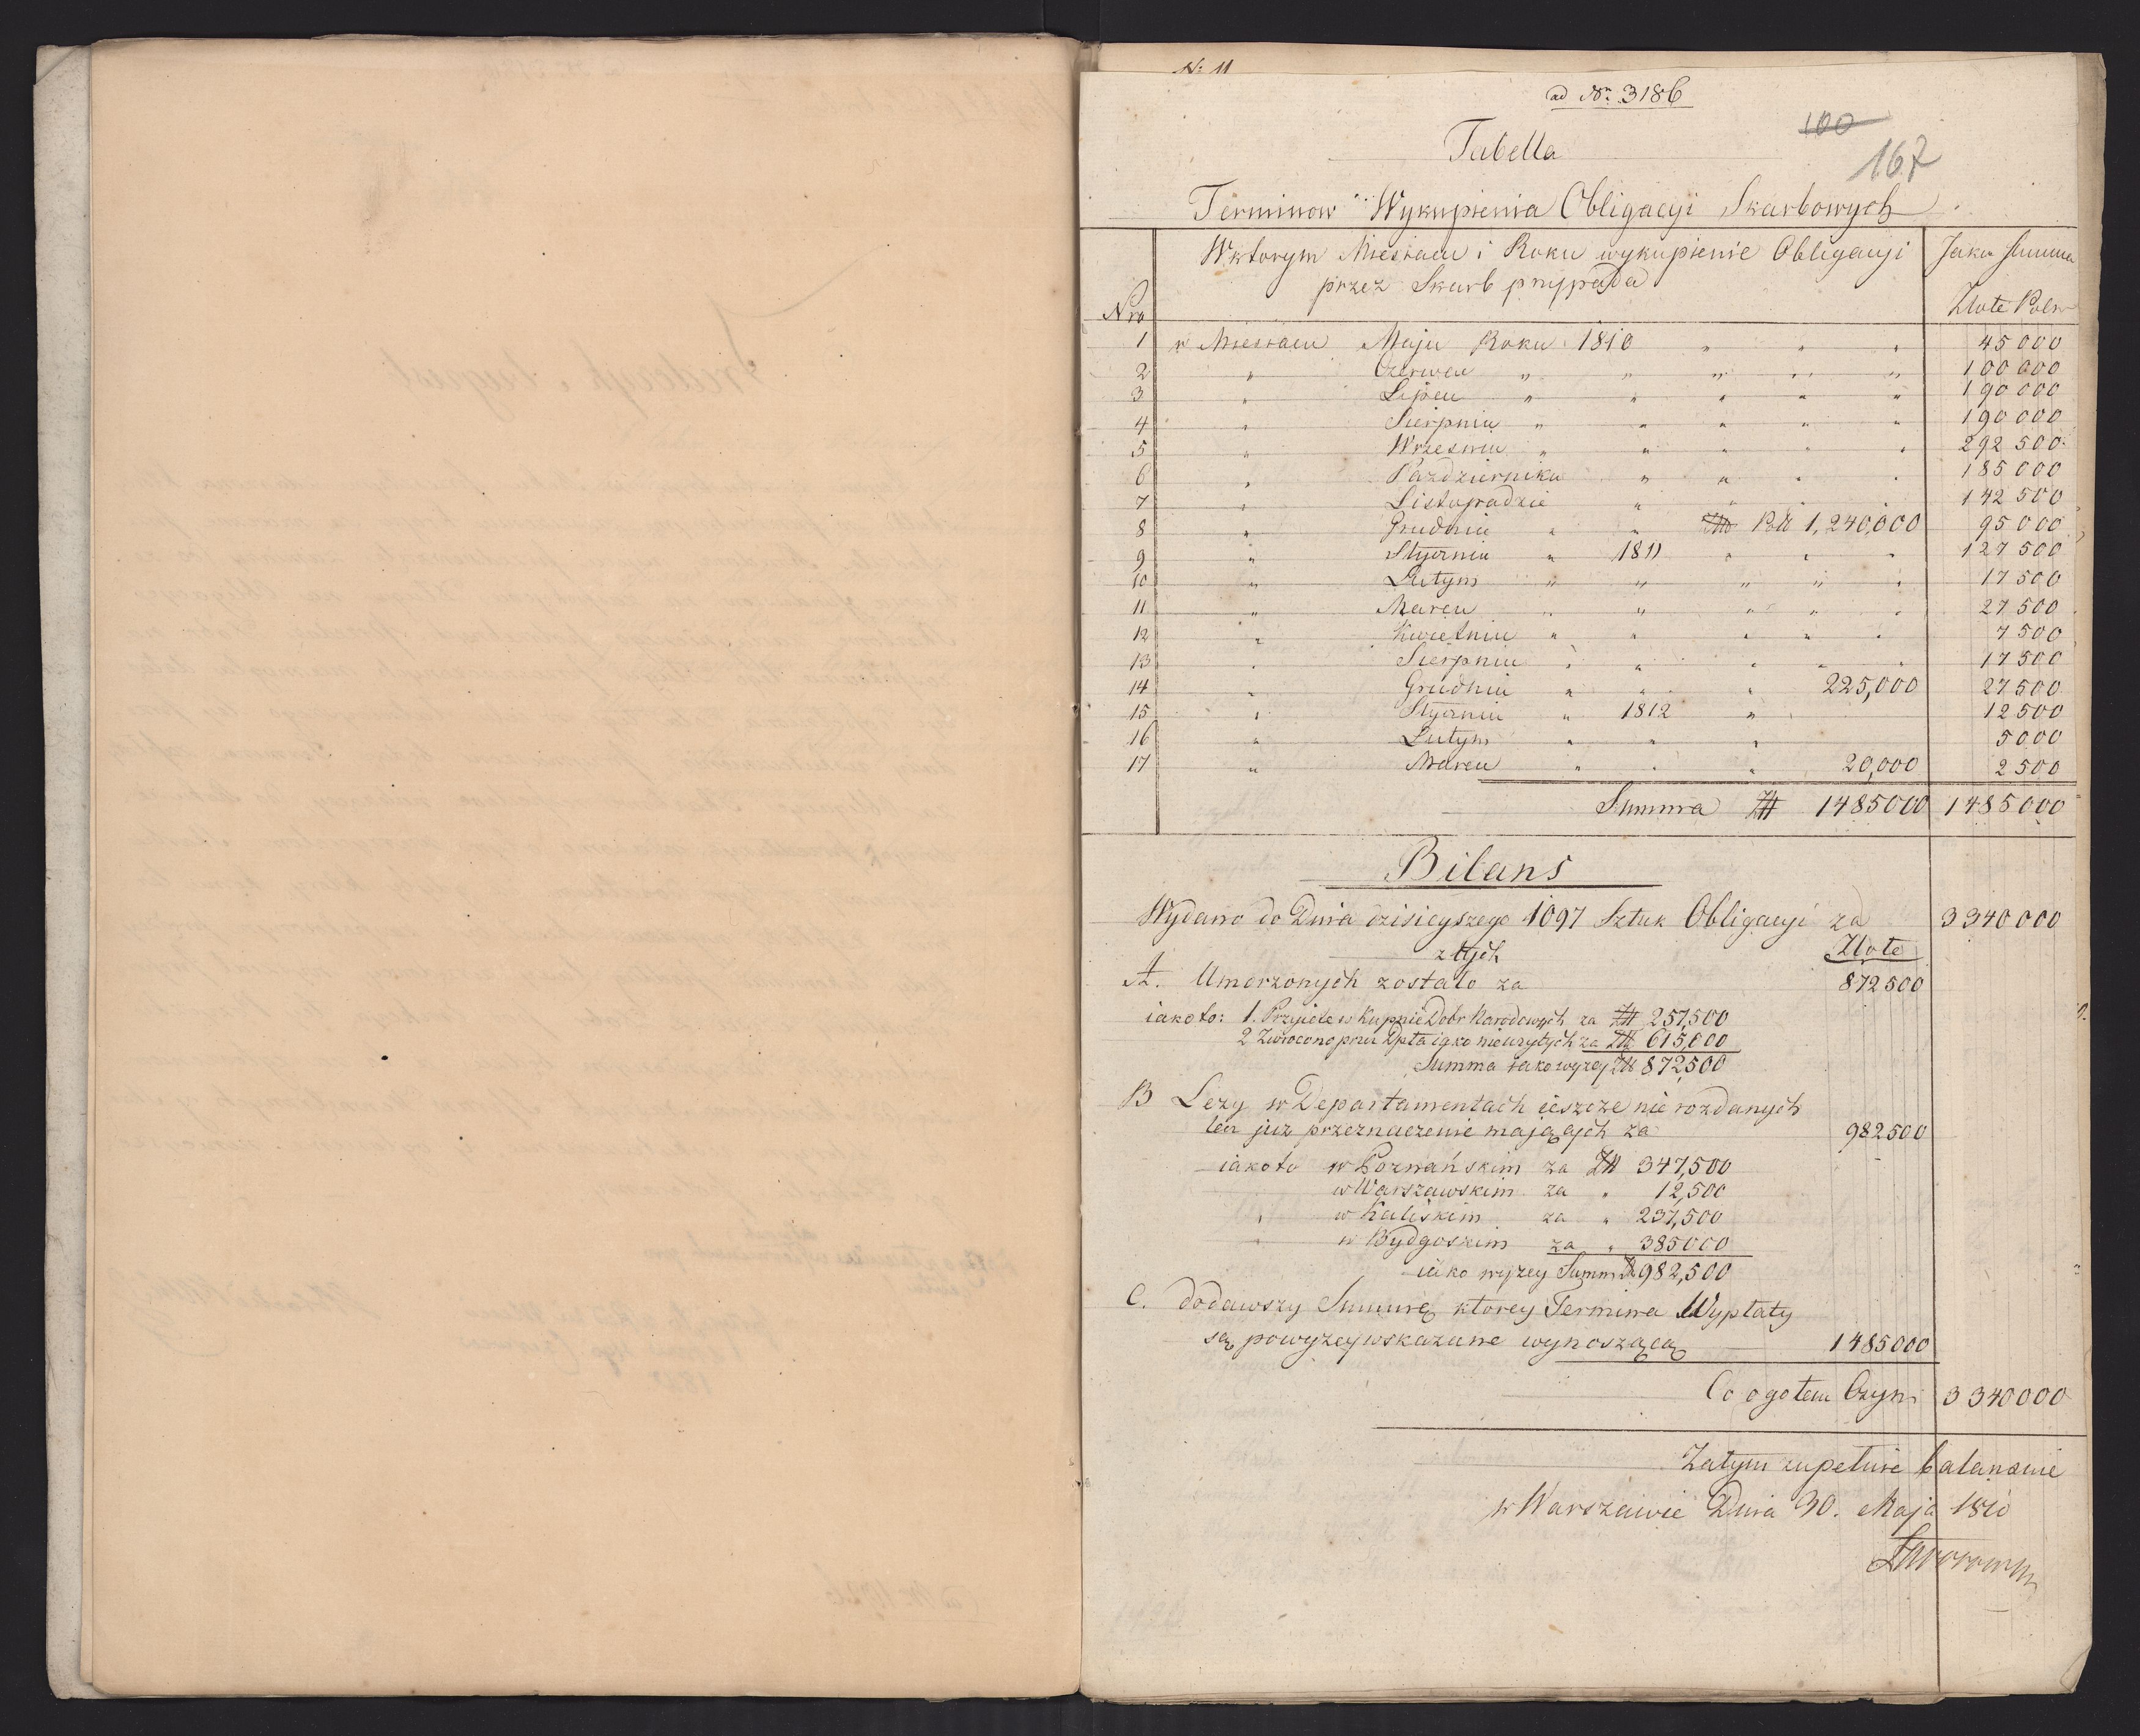 N: 11
ad Nr. 3186
100
167
Tabella
Terminow Wykupienia Obligacyi Skarbowych
Nro
W ktorym Miesiacu i Roku wykupienie Obligacyi
przez Skarb przypada
Jaka Summa
Złote Pols
1 w Miesiacu Maju Roku 1810 " " " 45000
2 " Czerwcu " " " " " 100000
3 " Lipcu " " " " " 190000
4 " Sierpniu " " " " " 190000
5 " Wrzesniu " " " " " 292500
6 " Pazdzierniku " " " " 185000
7 " Listopadzie " " " " 142500
8 " Grudniu " " Pols 1,240,000 95000
9 " Styczniu " 1811 " " " 127500
10 " Lutym " " " " " 17500
11 " Marcu " " " " " 27500
12 " Kwietniu " " " " " 7500
13 " Sierpniu " " " " " 17500
14 " Grudniu " " " 225,000 27500
15 " Styczniu " 1812 " 12500
16 " Lutym " " " 5000
17 " Marcu " " " 20,000 2500
Summa Złt 1485000 1485000
Bilans
Wydano do Dnia dzisieyszego 1097 Sztuk Obligacyi za 3340000
z tych Złote
A. Umorzonych zostało za 872500
iakoto: 1. Przyięte w Kupnie Dobr Narodowych za Złt 257,500
2 Zwrocono przez Dpta iako nieużytych za Złt 615,000
Summa iako wyzey Złt 872,500
B Lezy w Departamentach ieszcze nie rozdanych
lecz juz przeznaczenie maiących za 982500
iakoto w Poznańskim za Złt 347,500
w Warszawskim za " 12,500
" w Kaliskim za " 237,500
" w Bydgoskim za " 385000
iako wyzey Summa 982,500
C. dodawszy Summę ktorey Termina Wypłaty
są powyzey wskazane wynoszącą 1485000
Co ogołem Czyni 3340000
Zatym zupełnie balansuie
w Warszawie Dnia 30. Maja 1810